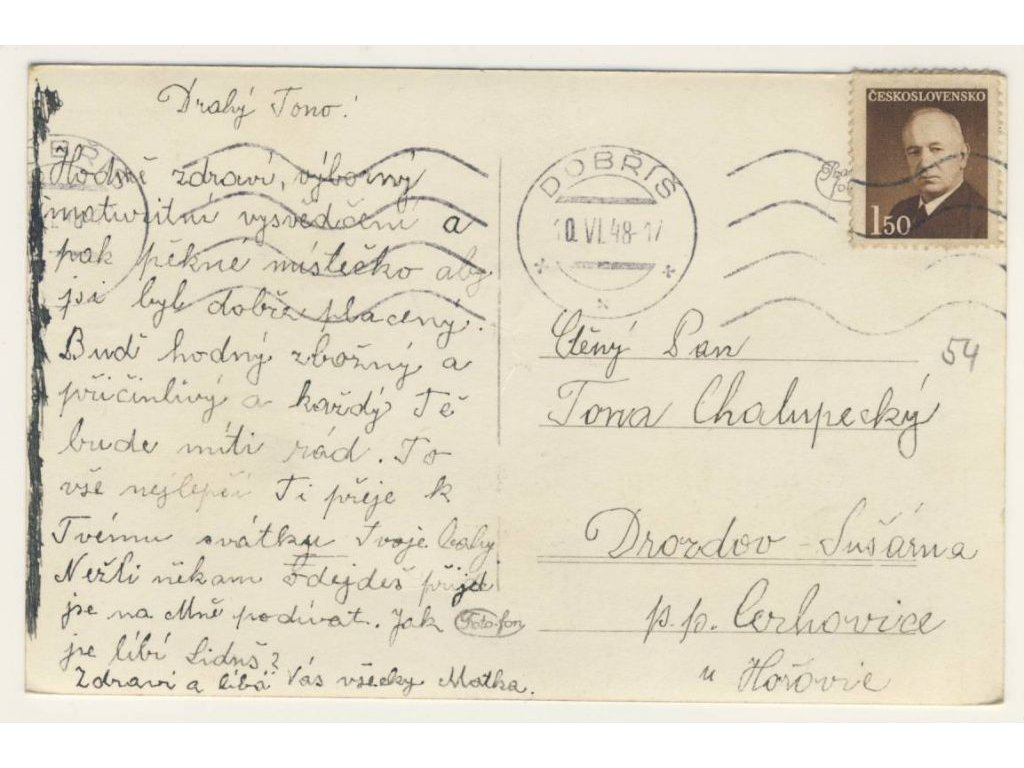 Drahý Tono!
Hodně zdraví, výborný
maturitní vysvědčení a
pak pěkné místečko aby
jsi byl dobře placený.
Buď hodný zbožný a
přičinlivý a každý Tě
bude míti rád. To
vše nejlepší Ti přeje k
Tvému svátku Tvoje
Nežli někam odejdeš přijď
jse na Mně podívat. Jak
jse líbí Liduš?
Zdraví a líbá Vás všecky Matka.
Foto-fon
DOBŘÍŠ
10.VI.48-17
ČESKOSLOVENSKO
150
54
Ctěný Pan
Tona Chalupecký
Drozdov - Sušárna
p.p. Cerhovice
u Hořovic